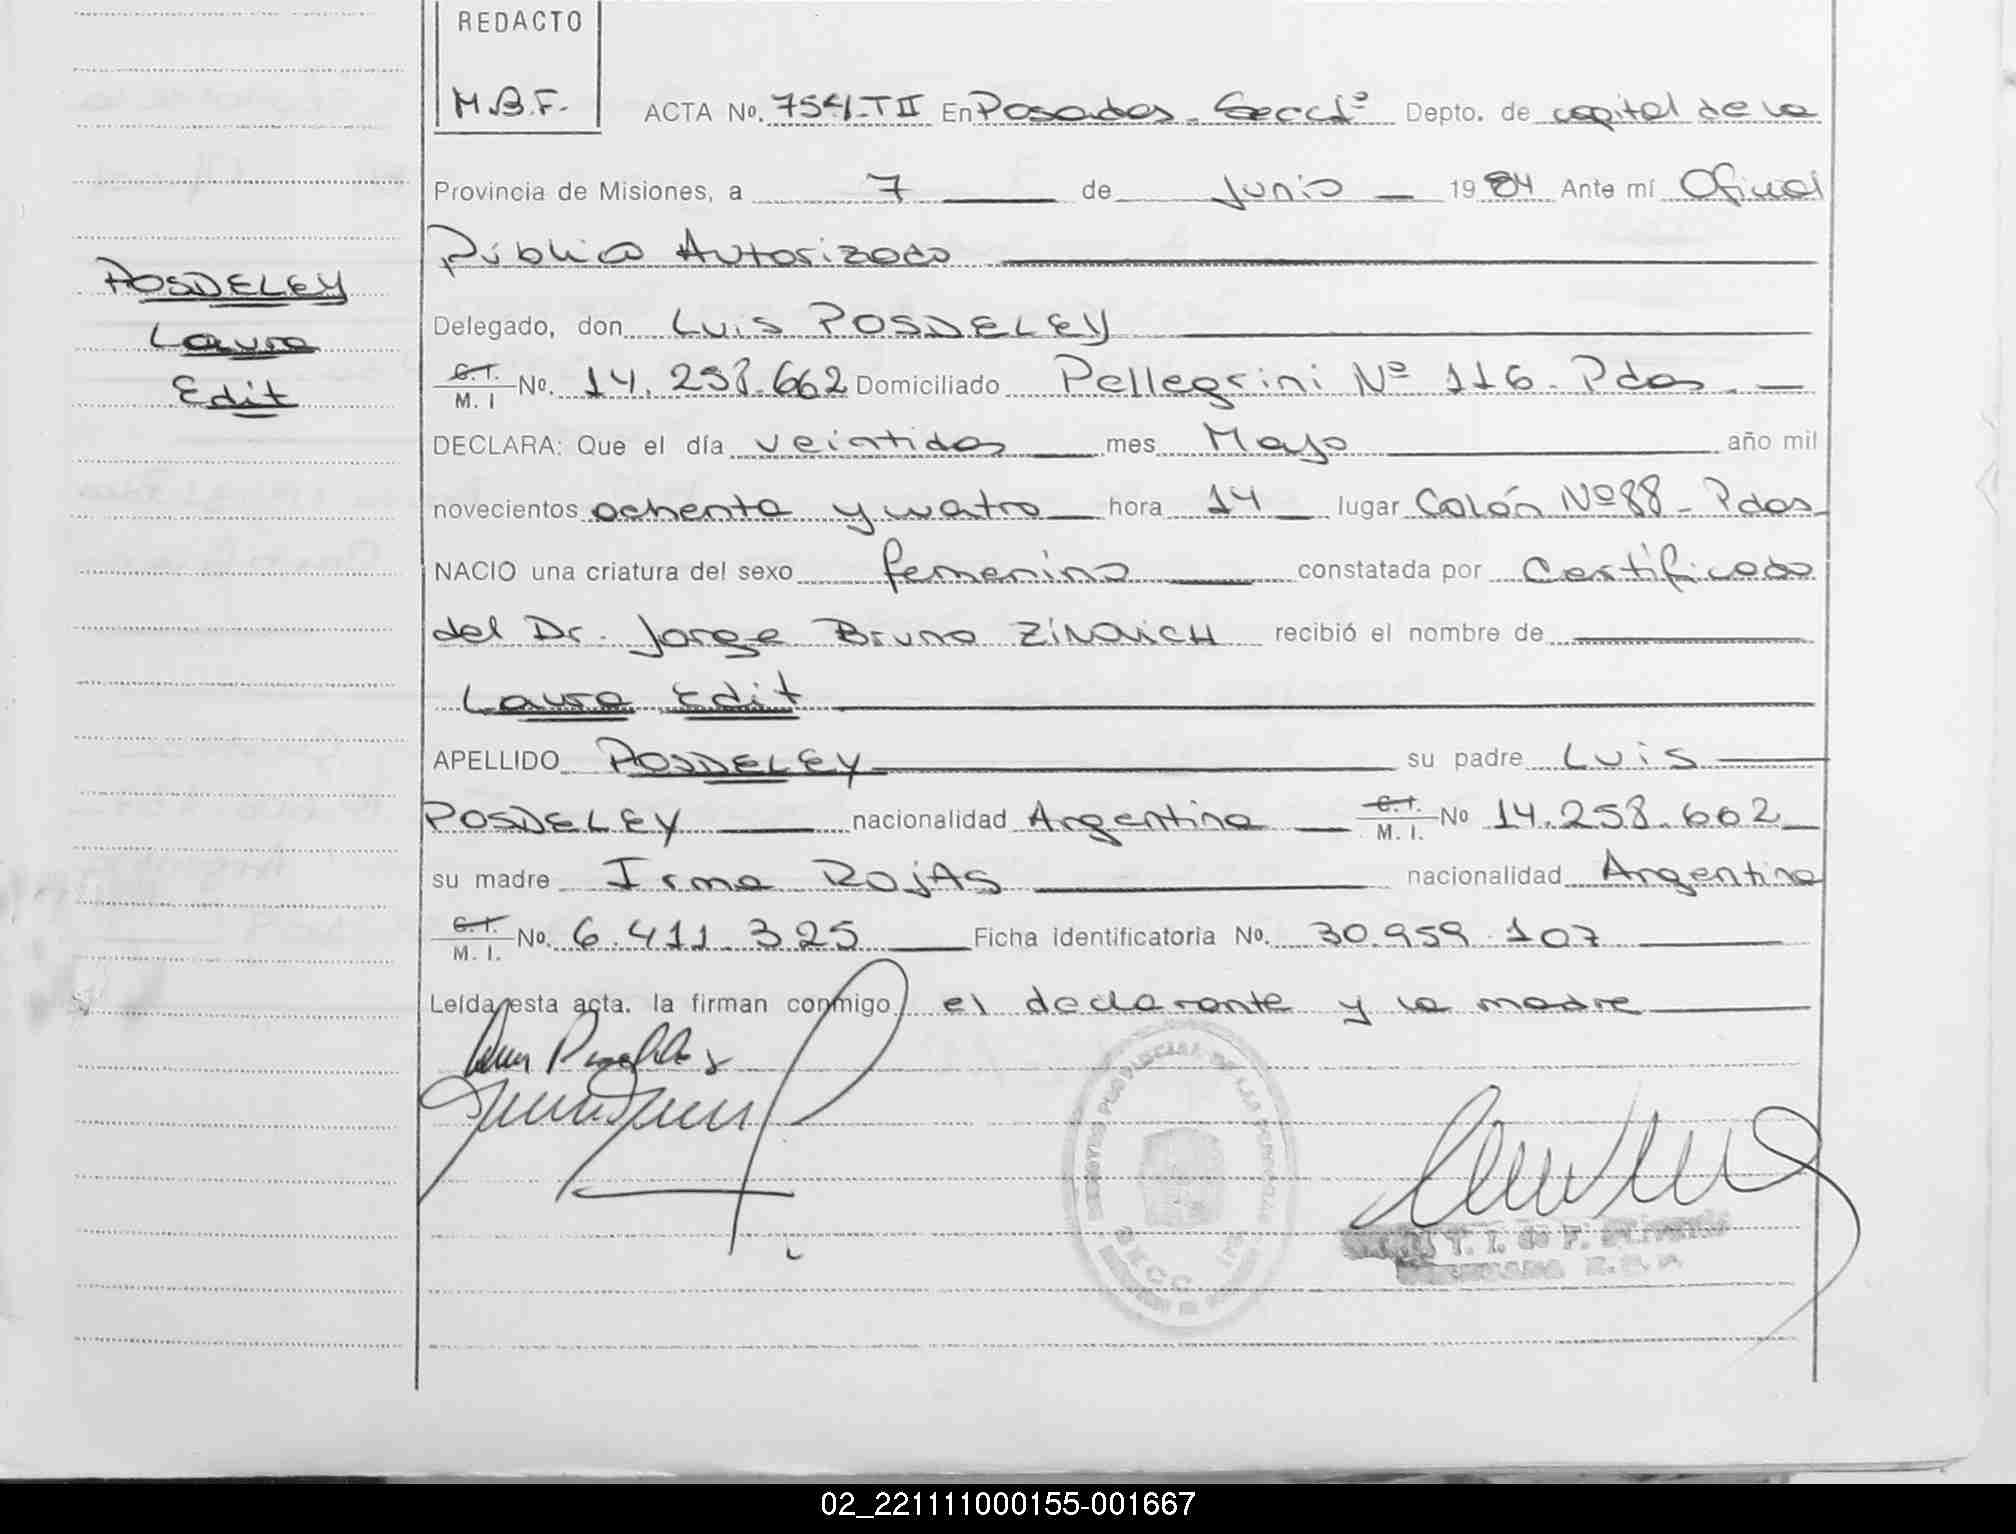 REDACTO
M.B.F.
ACTA No. 754-T II En Posadas - Secc 1ª Depto. de capital de la
Provincia de Misiones, a 7 de Junio 1984 Ante mí Oficial
Público Autorizado
POSDELEY
Laura
Edit
Delegado, don Luis POSDELEY
C.I. M. I No. 14.258.662 Domiciliado Pellegrini Nº 116 - Pdas.
DECLARA: Que el día veintidos mes Mayo año mil
novecientos ochenta y cuatro hora 14 lugar Colón Nº 88 - Pdas
NACIO una criatura del sexo femenino constatada por Certificado
del Dr. Jorge Bruno ZINOVICH recibió el nombre de
Laura Edit
APELLIDO POSDELEY su padre Luis
POSDELEY nacionalidad Argentina C.I. M. I. No 14.258.662
su madre Irma ROJAS nacionalidad Argentina
C.I. M. I. No. 6.411.325 Ficha identificatoria No. 30.959.107
Leída esta acta. la firman conmigo el declarante y la madre
02_221111000155-001667